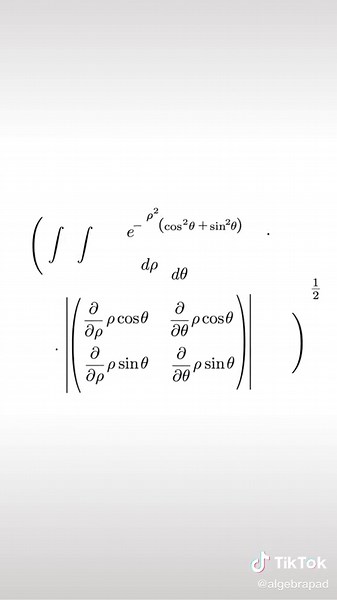 ( ∫ ∫ e^{-ρ²(cos²θ + sin²θ)} ·
dρ dθ
1/2
· | ( ∂/∂ρ ρ cos θ ∂/∂θ ρ cos θ
∂/∂ρ ρ sin θ ∂/∂θ ρ sin θ ) | )
TikTok
@algebrapad